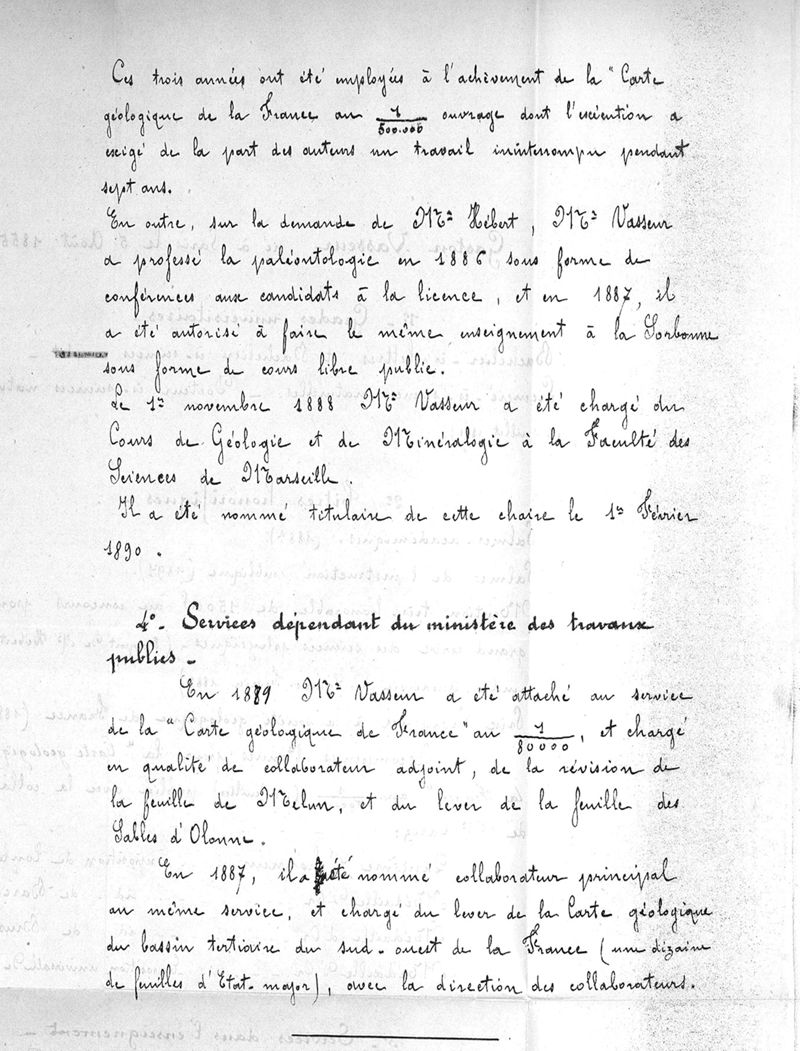 Ces trois années ont été employées à l'achèvement de la "Carte
géologique de la France au 1/500.000 ouvrage dont l'exécution a
exigé de la part des auteurs un travail ininterrompu pendant
sept ans.
En outre, sur la demande de Mr Hébert, Mr Vasseur
a professé la paléontologie en 1886 sous forme de
conférences aux candidats à la licence, et en 1887, il
a été autorisé à faire le même enseignement à la Sorbonne
sous forme de cours libre public.
Le 1er novembre 1888 Mr Vasseur a été chargé du
Cours de Géologie et de Minéralogie à la Faculté des
Sciences de Marseille.
Il a été nommé titulaire de cette chaire le 1er Février
1890.
4°- Services dépendant du ministère des travaux
publics -
En 1879 Mr Vasseur a été attaché au service
de la "Carte géologique de France" au 1/80000, et chargé
en qualité de collaborateur adjoint, de la révision de
la feuille de Melun, et du lever de la feuille des
Sables d'Olonne.
En 1887, il a été nommé collaborateur principal
au même service, et chargé du lever de la Carte géologique
du bassin tertiaire du sud-ouest de la France (une dizaine
de feuilles d'Etat-major), avec la direction des collaborateurs.